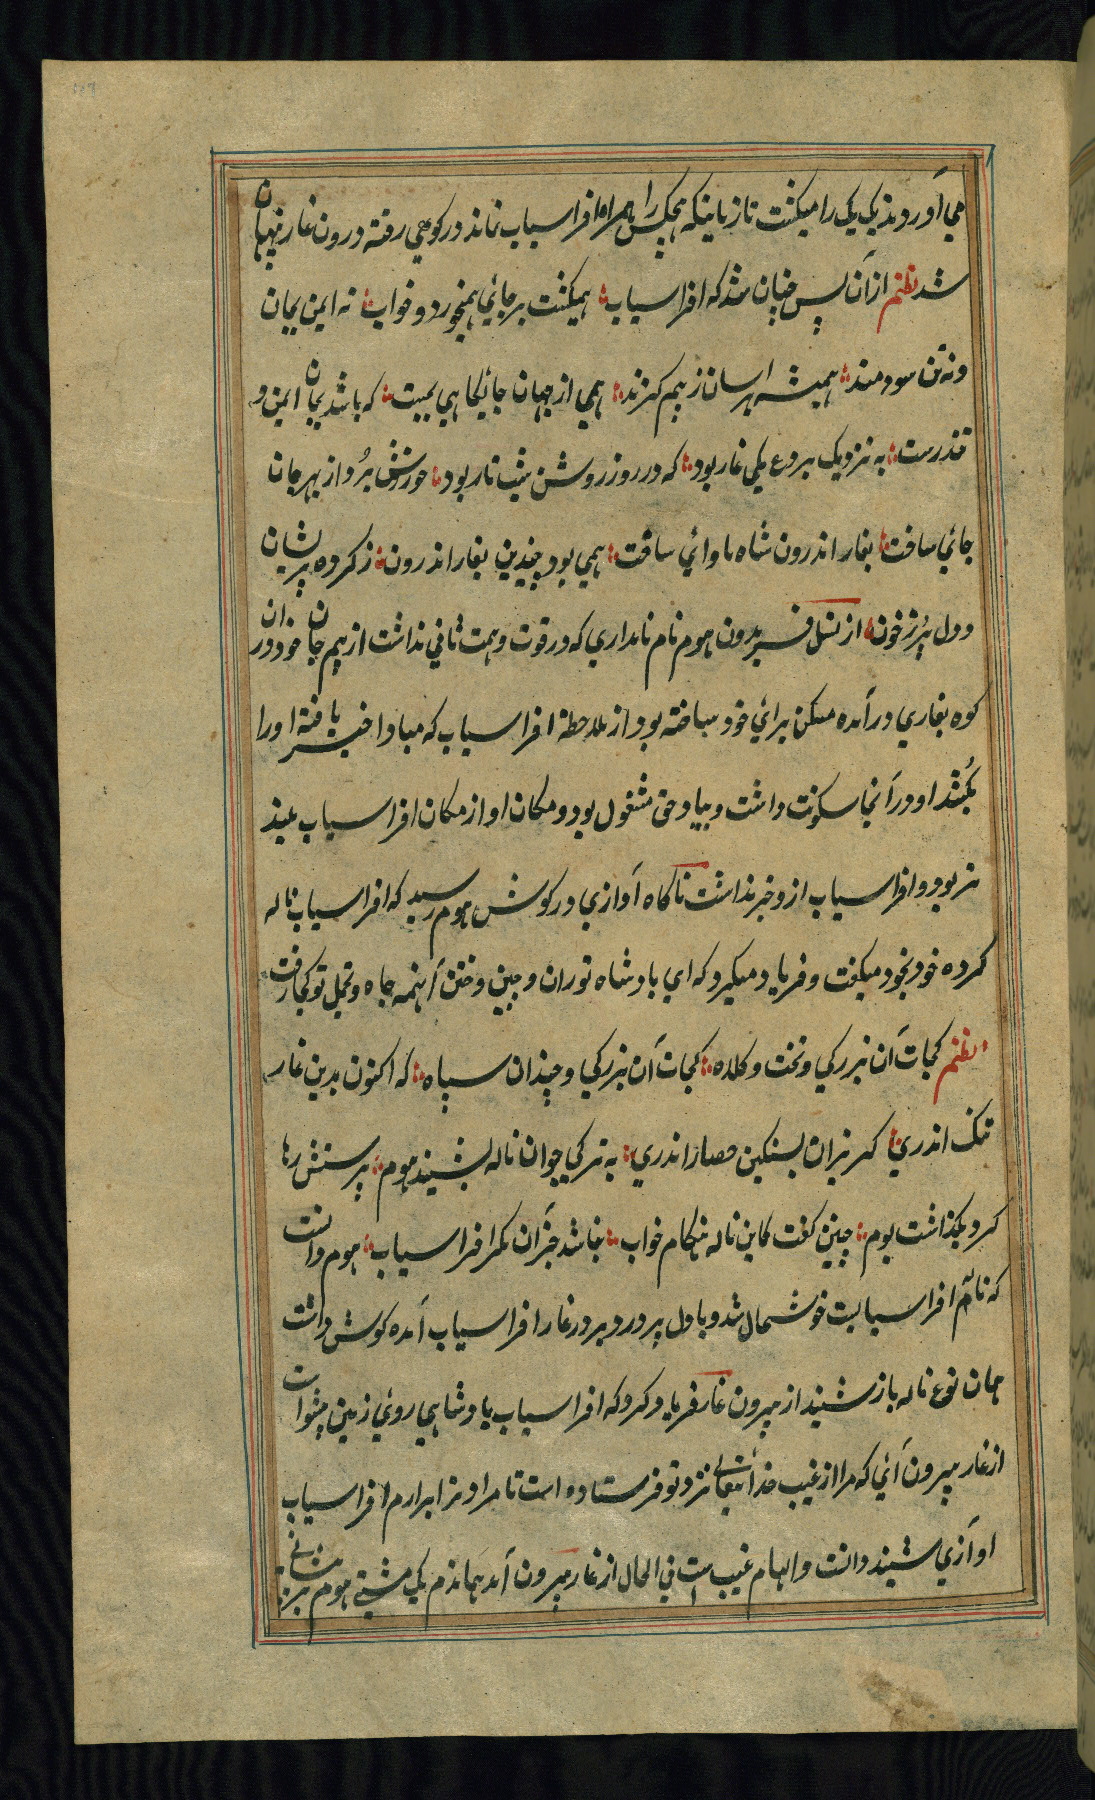 می آوردند یک یک را میکشت تا زمانیکه هیچکس را همراه افراسیاب نماند در کوهی رفته درون غار پنهان
شد نظم از آن پس چنان شد که افراسیاب همیگشت بر جائی بیخورد و خواب نه ایمن بجان
و نه تن سودمند همیشه هراسان ز بیم گزند همی از جهان جایگاهی بجست که باشد بجان ایمن و
تندرست به نزدیک بردع یکی غار بود که در روز روشن شب تار بود خورش برد و از بهر جان
جائی ساخت بغار اندرون شاه ماوائی ساخت همی بود چندین بغار اندرون ز کرده پریشان
و دل پر ز خون از نسل فریدون هوم نام نامداری که در قوت و همت ثانی نداشت از بیم جان خود در ان
کوه بغاری در آمده مسکن برای خود ساخته بود از ملاحظهٔ افراسیاب که مبادا خبر یافته او را
بکشد او در آنجا سکونت داشت و بیاد حق مشغول بود و مکان او از مکان افراسیاب بلند
تر بود و افراسیاب ازو خبر نداشت ناگاه آوازی در گوش هوم رسید که افراسیاب ناله
کرده خود بخود میگفت و فریاد میکرد که ای پادشاه توران و چین و ختن آنهمه جاه و تجمل تو کجا رفت
نظم کجات آن بزرگی و تخت و کلاه کجات آن بزرگی و چندان سپاه که اکنون بدین غار
تنگ اندری گریزان بسنگین حصار اندری به ترکی چو آن ناله بشنید هوم پرستش رها
کرد و بگذاشت بوم چنین گفت کاین ناله هنگام خواب نباشد جز آن مگر افراسیاب هوم دانست
که نالم افراسیابست خوشحال شد و با دل پر درد بر در غار افراسیاب آمده گوش داشت
همان نوع ناله باز شنید از بیرون غار فریاد کرد که افراسیاب پادشاهی روی زمین
از غار بیرون آئی که مرا از غیب خدا تعالی نزد تو فرستاده است تا مراد ترا برارم افراسیاب
آوازی شنید دانست و الهام غیب است فی الحال از غار بیرون آمد هماندم یک مشتی هوم